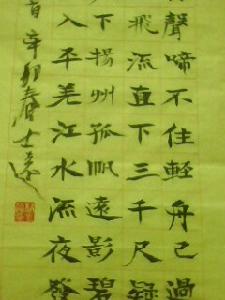 聲啼不住輕舟已過
飛流直下三千尺疑
下揚州孤帆遠影碧
入平羌江水流夜發
首辛卯春士